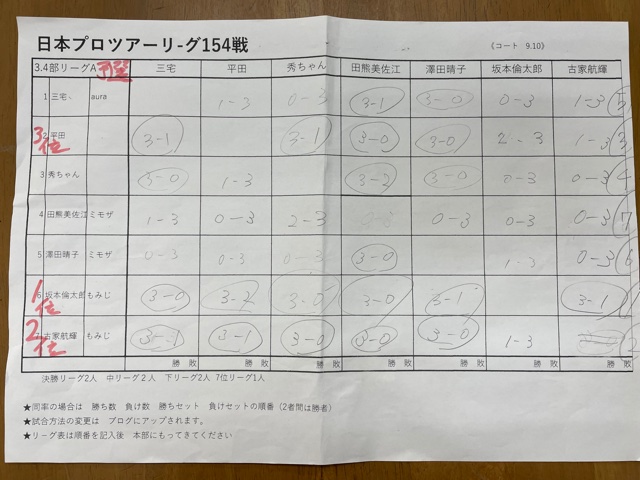 日本プロツアーリ-グ154戦
《コート 9.10》
3.4部リーグA 予選 三宅 平田 秀ちゃん 田熊美佐江 澤田晴子 坂本倫太郎 古家航輝
1 三宅、 aura 1-3 0-3 3-1 3-0 0-3 1-3 5
3位 2 平田 3-1 3-1 3-0 3-0 2-3 1-3 3
3 秀ちゃん 3-0 1-3 3-2 3-0 0-3 0-3 4
4 田熊美佐江 ミモザ 1-3 0-3 2-3 0-3 0-3 0-3 7
5 澤田晴子 ミモザ 0-3 0-3 0-3 3-0 1-3 0-3 6
1位 6 坂本倫太郎 もみじ 3-0 3-2 3-0 3-0 3-1 3-1 1
2位 7 古家航輝 もみじ 3-1 3-1 3-0 3-0 3-0 1-3 2
勝 敗 勝 敗 勝 敗 勝 敗 勝 敗 勝 敗 勝 敗
決勝リーグ2人 中リーグ２人 下リーグ2人 7位リーグ1人
★同率の場合は 勝ち数 負け数 勝ちセット 負けセットの順番（2者間は勝者）
★試合方法の変更は ブログにアップされます。
★リーグ表は順番を記入後 本部にもってきてください